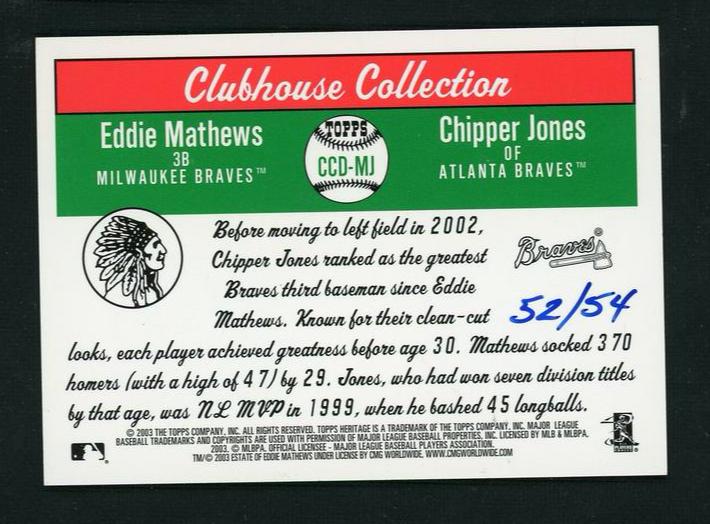 Clubhouse Collection
Eddie Mathews
3B
MILWAUKEE BRAVES™
TOPPS
CCD-MJ
Chipper Jones
OF
ATLANTA BRAVES™
Before moving to left field in 2002,
Chipper Jones ranked as the greatest
Braves third baseman since Eddie
Mathews. Known for their clean-cut
looks, each player achieved greatness before age 30. Mathews socked 370
homers (with a high of 47) by 29. Jones, who had won seven division titles
by that age, was NL MVP in 1999, when he bashed 45 longballs.
Braves
52/54
© 2003 THE TOPPS COMPANY, INC. ALL RIGHTS RESERVED. TOPPS HERITAGE IS A TRADEMARK OF THE TOPPS COMPANY, INC. MAJOR LEAGUE
BASEBALL TRADEMARKS AND COPYRIGHTS ARE USED WITH PERMISSION OF MAJOR LEAGUE BASEBALL PROPERTIES, INC. LICENSED BY MLB & MLBPA.
2003. © MLBPA. OFFICIAL LICENSEE - MAJOR LEAGUE BASEBALL PLAYERS ASSOCIATION.
TM/© 2003 ESTATE OF EDDIE MATHEWS UNDER LICENSE BY CMG WORLDWIDE, WWW.CMGWORLDWIDE.COM